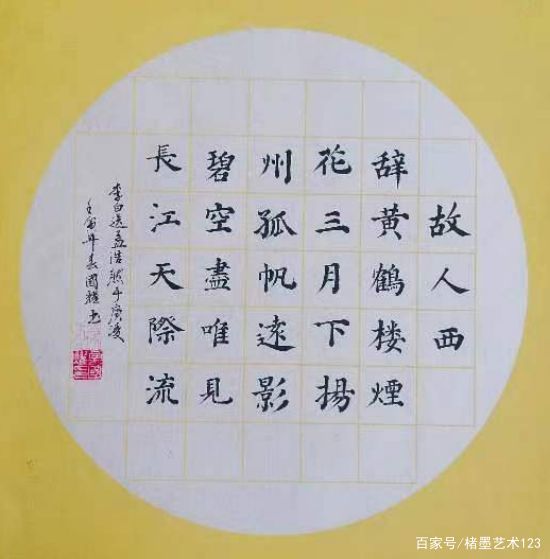 故人西
辞黄鶴楼煙
花三月下揚
州孤帆遠影
碧空盡唯見
長江天際流
李白送孟浩然于廣陵
百家号/楮墨艺术123